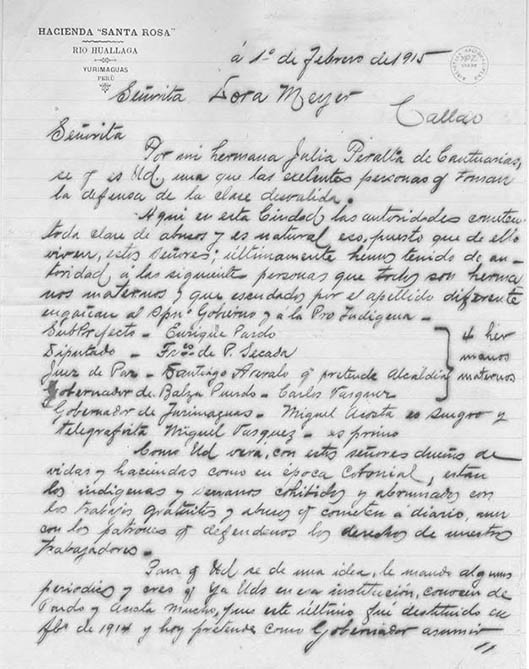 HACIENDA "SANTA ROSA"
RIO HUALLAGA
YURIMAGUAS
PERÚ
á 1º de Febrero de 1915
Señorita Dora Meyer
Callao
Señorita
Por mi hermana Julia Peralta de Cantuarias,
se q es Ud. una que las exelentes personas q toman
la defensa de la clase desvalida.
Aqui en esta Ciudad las autoridades cometen
toda clase de abusos y es natural eso, puesto que de ello
viven, estos señores; ultimamente hemos tenido de au-
toridad á las siguiente personas que todos son herma
nos maternos y que escudados por el apellido diferente
engañan al Spmo Gobierno y a la Pro Indigena -
SubPrefecto - Enrique Pardo
Diputado - Frco de P. Secada
Juez de Paz - Santiago Arevalo q pretende Alcaldia
Gobernador de Balza Puerdo - Carlos Vasquez
4 her
manos
maternos
Gobernador de Jurimaguas - Miguel Acosta es suegro y
telegrafista Miguel Vasquez - es primo
Como Ud vera, con estos señores dueños de
vidas y haciendas como en época Colonial, estan
los indigenas y cohibidos y abrumados con
los trabajos gratuitos y abusos q cometen a diario,
con los patrones q defendenos los derechos de nuestros
trabajadores -
Para q Ud se de una idea, le mando algunos
periodicos y creo q ya Uds en esa institución, conocen de
Pardo y Acosta mucho, pues este último fué destituido en
de 1914 y hoy pretende como Gobernador asumir